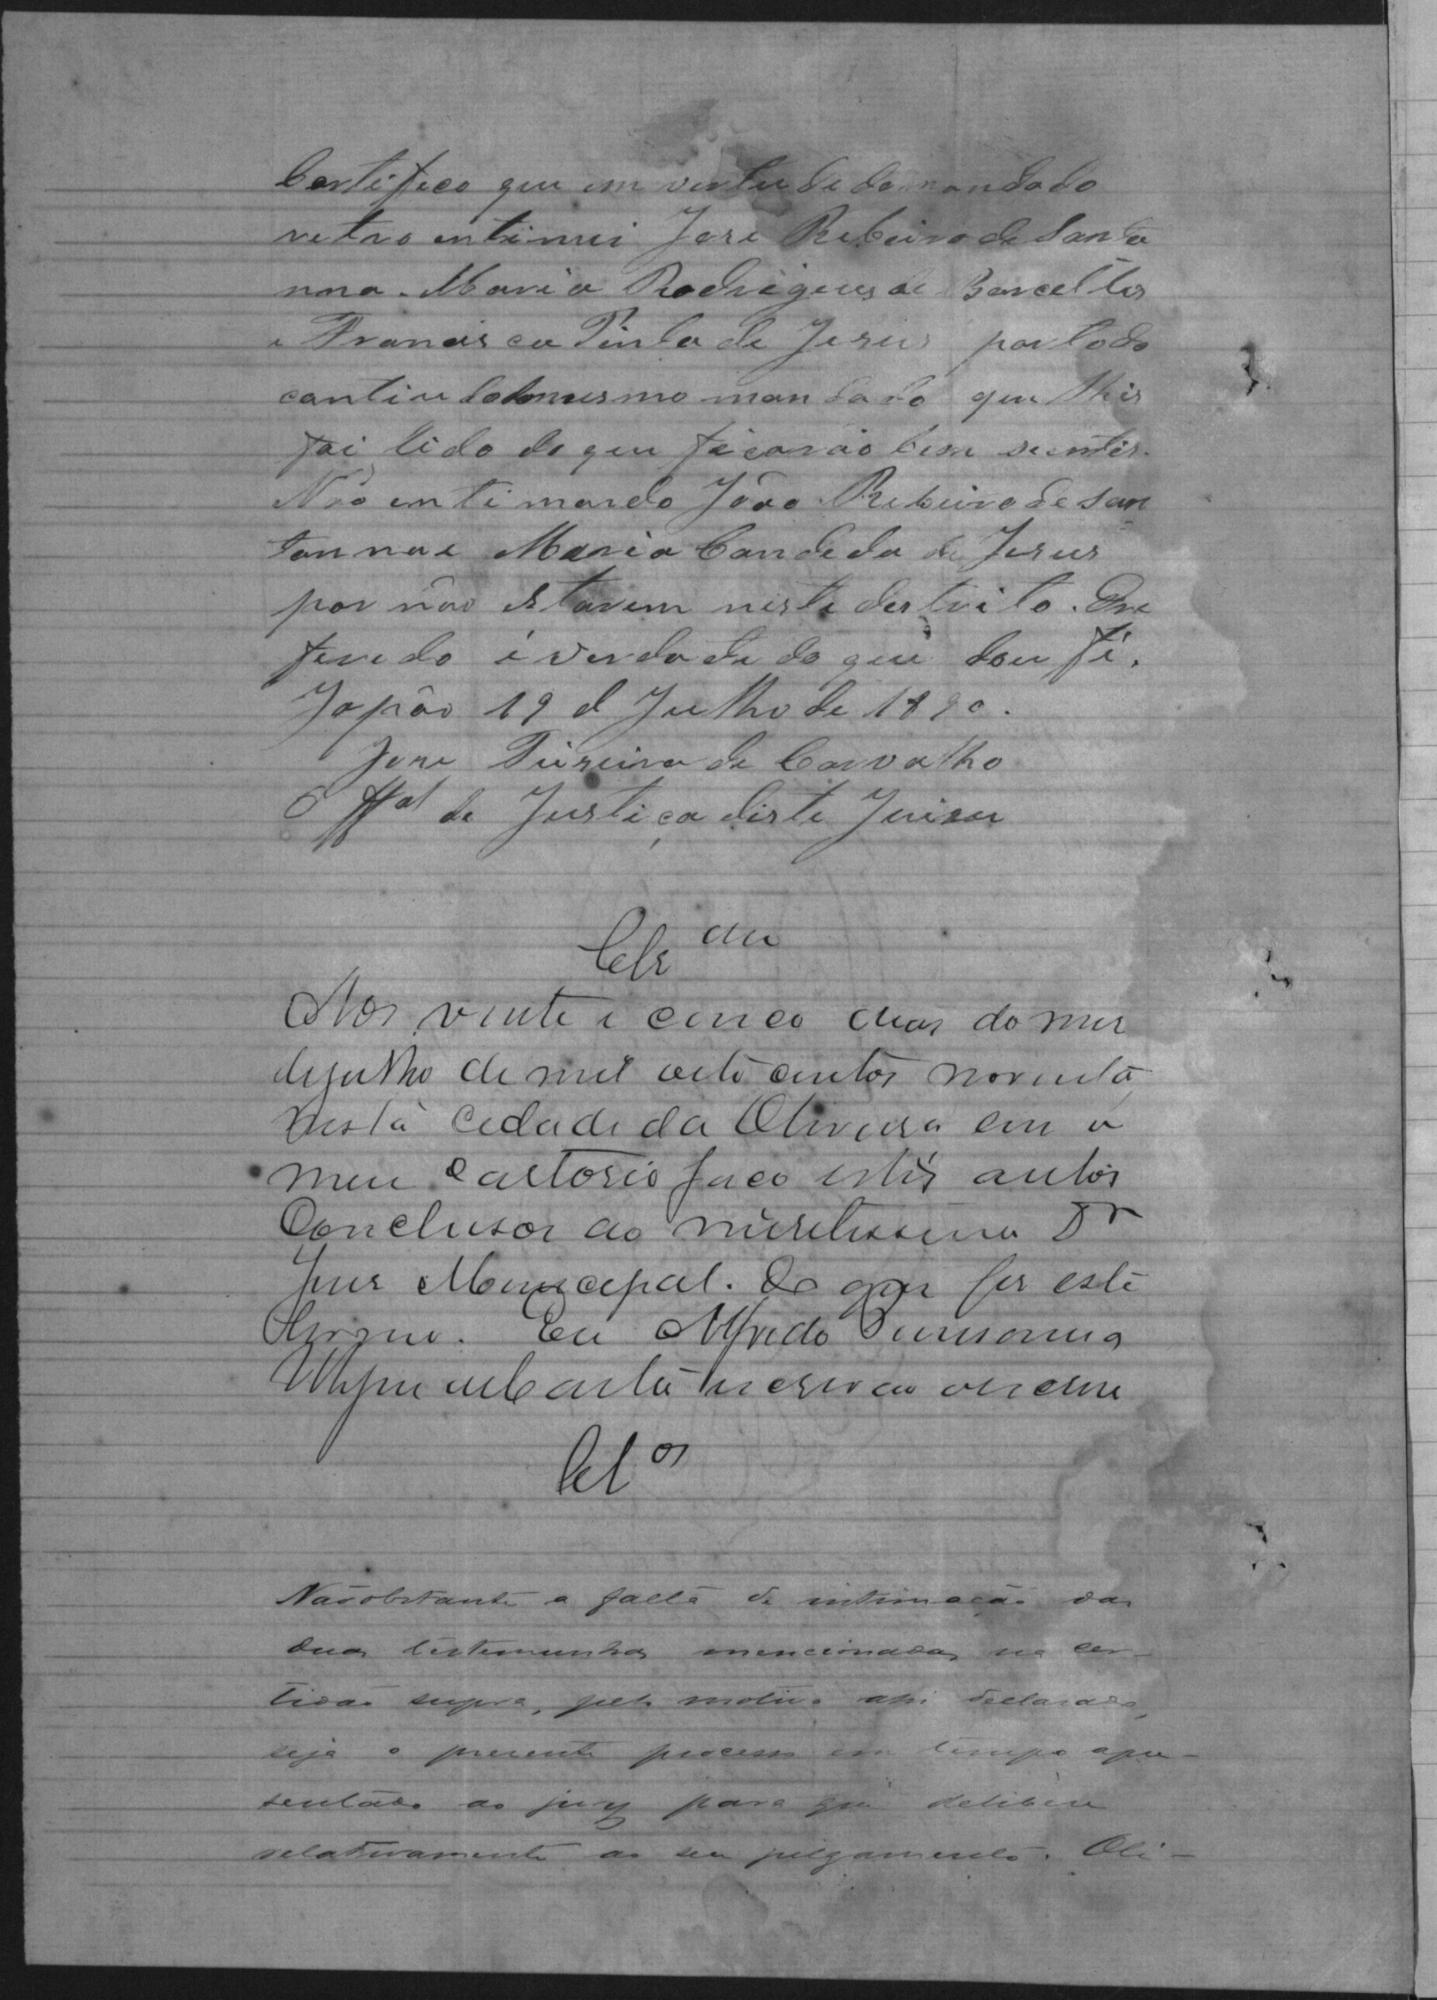 Certifico que em vertude do mandado
retro intimei Jose Ribeiro de Santa
nna. Maria Rodrigues de Barcellos
e Francisca Pinta de Jesus por todo
contiudo do mesmo mandado que lhis
foi lido do que ficarão bem scientes.
Não entimando João Ribeiro de San
tanna e Maria Candeda de Jesus
por não estarem neste destrito. O re
feredo é verdade do que dou fé.
Japão 19 d Julho de 1890.
Jose Teixeira de Carvalho
Offal de Justiça deste Juiso
Clsam
Aos vinte e cinco dias do mes
de julho de mil oito centos noventa
nesta cidade da Oliveira em o
meu cartorio faco estes autos
Conclusos ao meretissimo Dr
Juis Municepal. Do que fis este
termo. Eu Alfredo
escrivão
Clos
Não obstante a falta de intimação das
duas testemunhas mencionadas na cer-
tidão supra, pelo motivo ahi declarado,
seja o presente processo em tempo apre-
sentado ao jury para que delibere
relativamente ao seu julgamento. Oli-